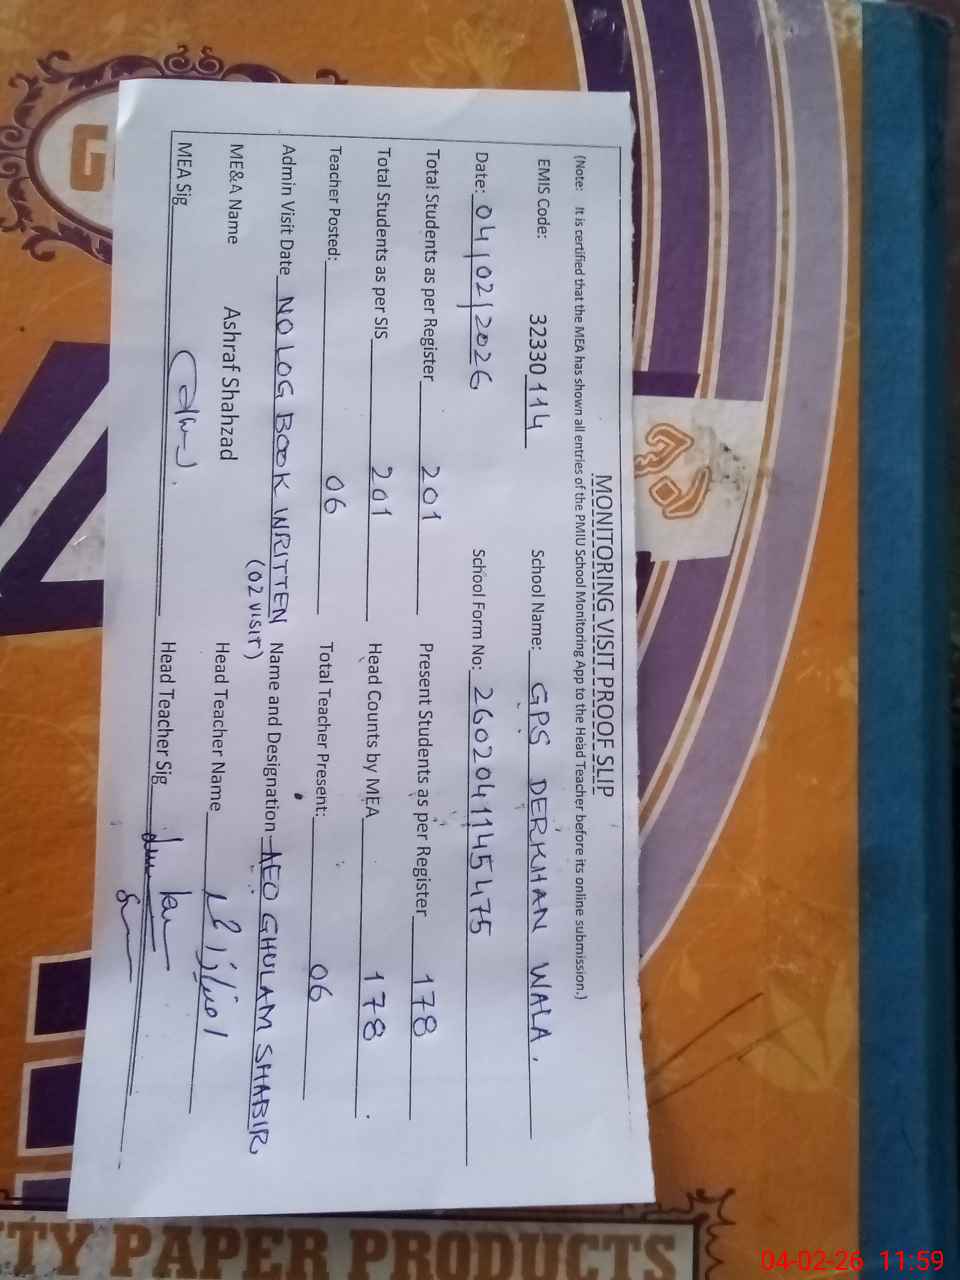 MONITORING VISIT PROOF SLIP
(Note: It is certified that the MEA has shown all entries of the PMIU School Monitoring App to the Head Teacher before its online submission.)
EMIS Code: 32330114 School Name: GPS DERKHAN WALA.
Date: 04/02/2026 School Form No: 2602041145475
Total Students as per Register 201 Present Students as per Register 178
Total Students as per SIS 201 Head Counts by MEA 178
Teacher Posted: 06 Total Teacher Present: 06
Admin Visit Date NO LOG BOOK WRITTEN Name and Designation AEO GHULAM SHABIR
(02 VISIT)
ME&A Name Ashraf Shahzad Head Teacher Name
MEA Sig Head Teacher Sig
TY PAPER PRODUCTS
04-02-26 11:59